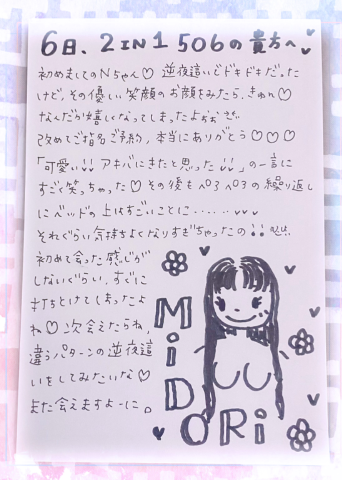 6日、2IN1 506の貴方へ
初めましてのNちゃん♡ 逆夜這いでドキドキだった
けど、その優しい笑顔のお顔をみたら、きゅん♡
なんだか嬉しくなってしまったよぉぉ
改めてご指名ご予約、本当にありがとう♡♡♡
「可愛い!! アキバにきたと思った!!」の一言に
すごく笑っちゃった♡ その後もペロペロの繰り返し
にベッドの上はすごいことに‥‥‥
それぐらい気持ちよくなりすぎちゃったの!!
初めて会った感じが
しないぐらい、すぐに
打ちとけてしまったよ
ね♡ 次会えたらね、
違うパターンの逆夜這
いをしてみたいな♡
また会えますよーに。
MiDORi